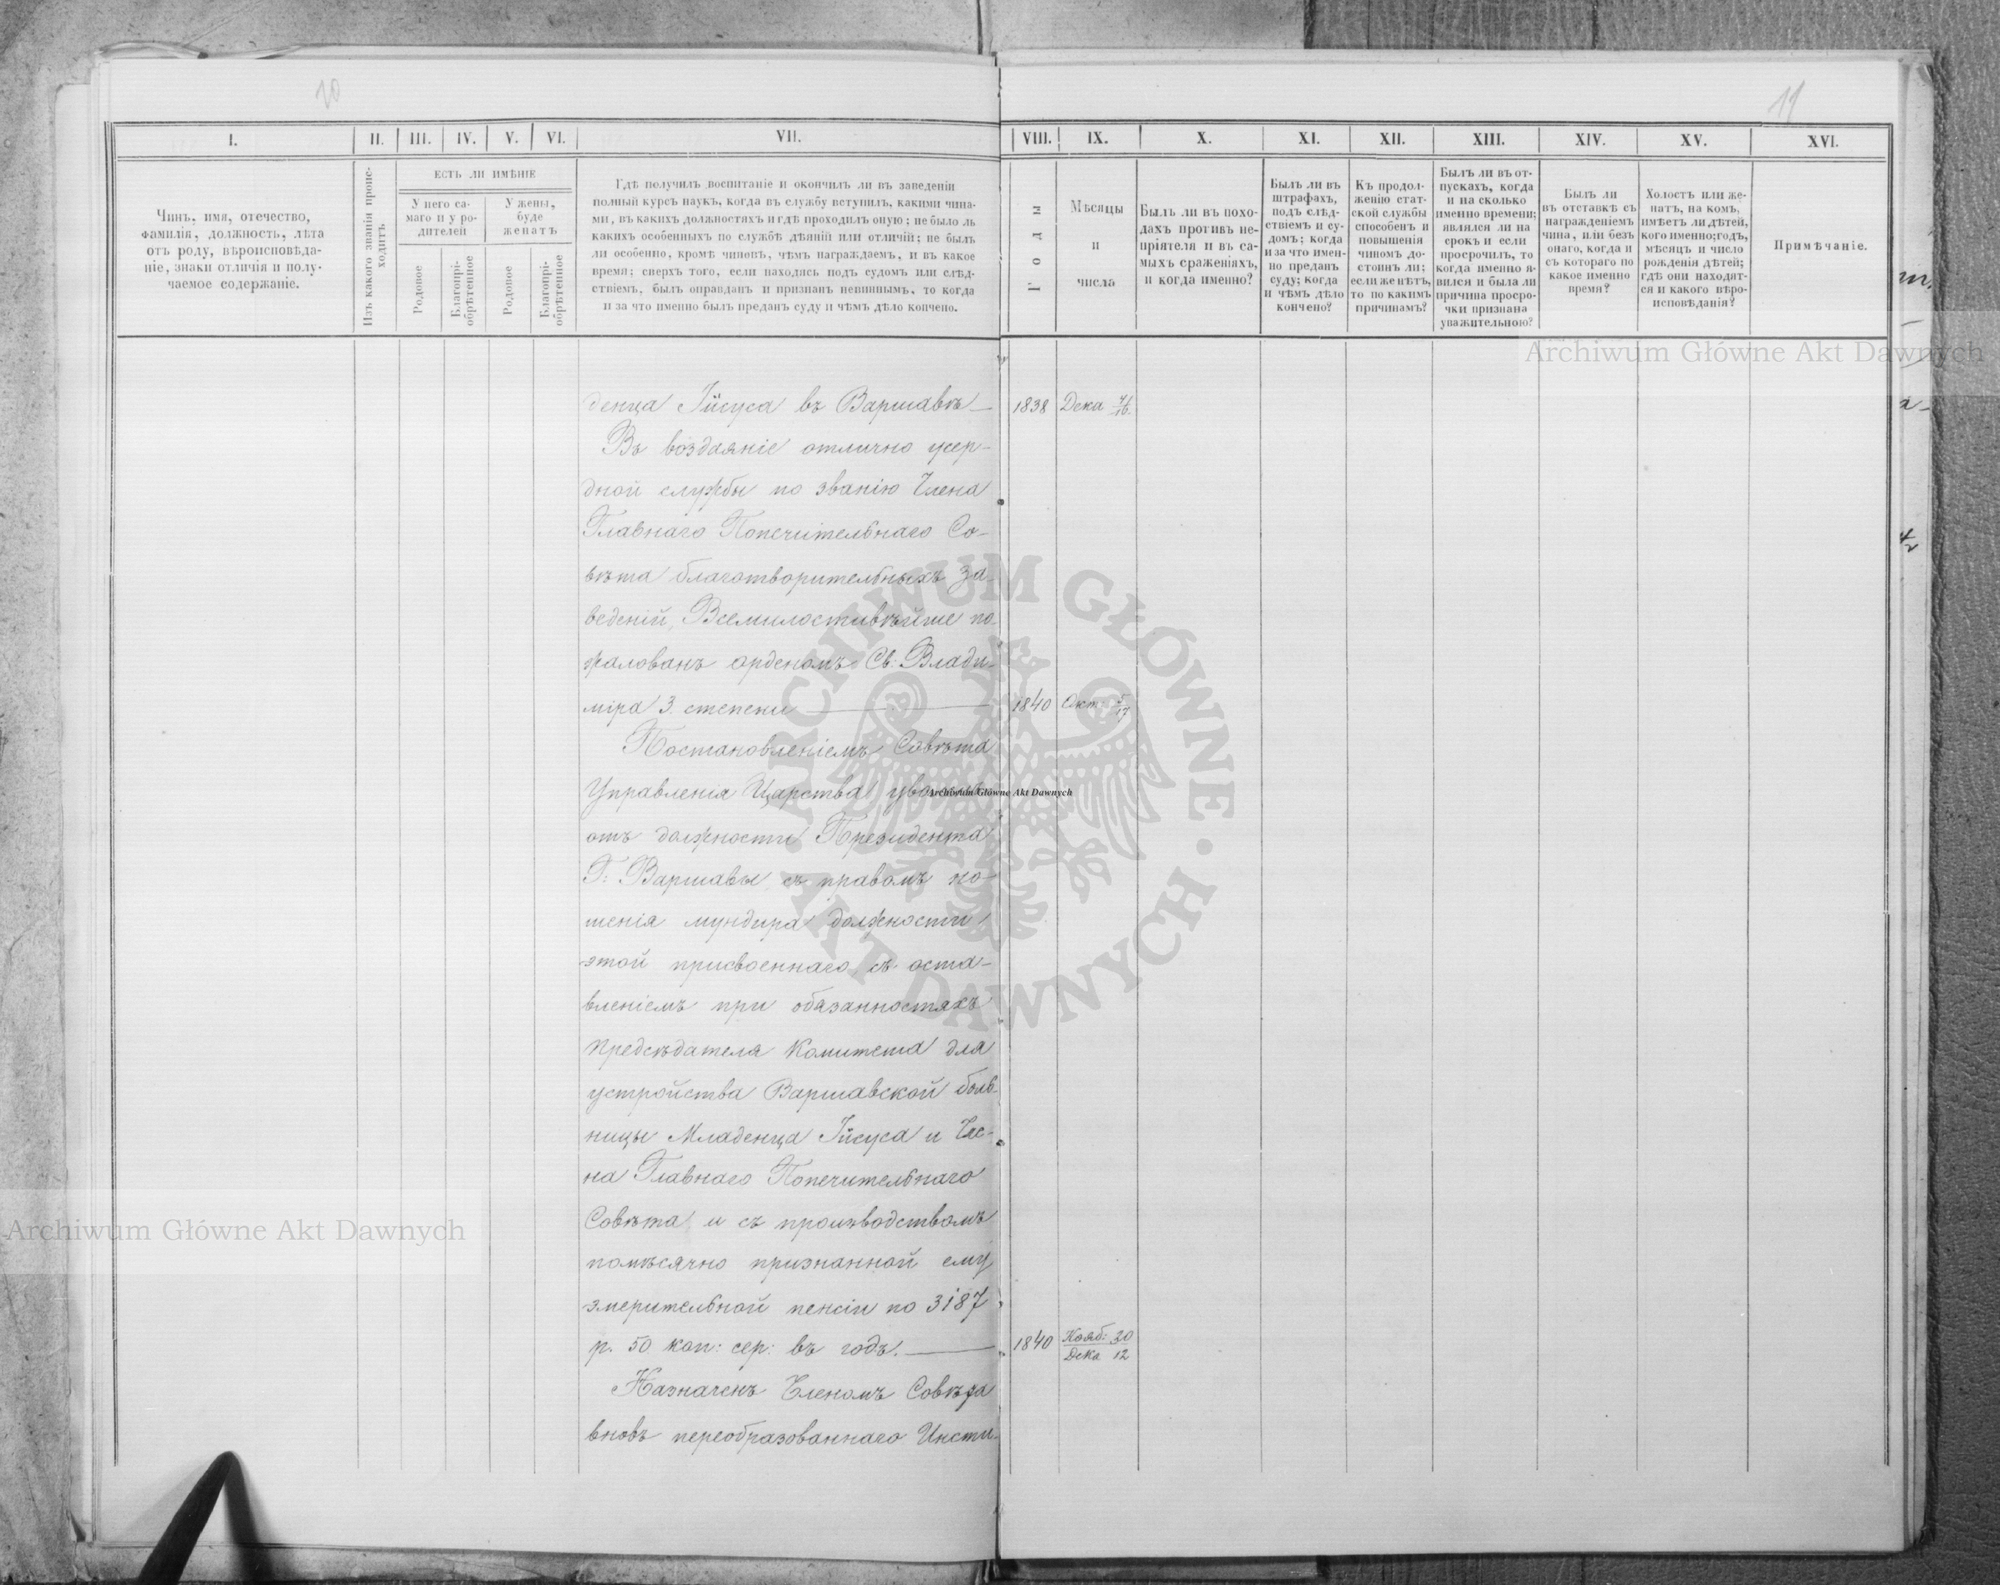 10
11
I.
II.
III.
IV.
V.
VI.
VII.
VIII.
IX.
X.
XI.
XII.
XIII.
XIV.
XV.
XVI.
Чинъ, имя, отечество,
фамилія, должность, лѣта
отъ роду, вѣроисповѣда-
ніе, знаки отличія и полу-
чаемое содержаніе.
Изъ какого званія проис-
ходитъ.
ЕСТЬ ЛИ ИМѢНІЕ
У него са-
маго и у ро-
дителей
У жены,
буде
женатъ
Родовое
Благопрі-
обрѣтенное
Родовое
Благопрі-
обрѣтенное
Гдѣ получилъ воспитаніе и окончилъ ли въ заведеніи
полный курсъ наукъ, когда въ службу вступилъ, какими чина-
ми, въ какихъ должностяхъ и гдѣ проходилъ оную; не было ль
какихъ особенныхъ по службѣ дѣяній или отличій; не былъ
ли особенно, кромѣ чиновъ, чѣмъ награждаемъ, и въ какое
время; сверхъ того, если находясь подъ судомъ или слѣд-
ствіемъ, былъ оправданъ и признанъ невиннымъ, то когда
и за что именно былъ преданъ суду и чѣмъ дѣло кончено.
Годы
Мѣсяцы
и
числа
Былъ ли въ похо-
дахъ противъ не-
пріятеля и въ са-
мыхъ сраженіяхъ,
и когда именно?
Былъ ли въ
штрафахъ,
подъ слѣд-
ствіемъ и су-
домъ; когда
и за что имен-
но преданъ
суду; когда
и чѣмъ дѣло
кончено?
Къ продол-
женію стат-
ской службы
способенъ и
повышенія
чиномъ до-
стоинъ ли;
если же нѣтъ,
то по какимъ
причинамъ?
Былъ ли въ от-
пускахъ, когда
и на сколько
именно времени;
являлся ли на
срокъ и если
просрочилъ, то
когда именно я-
вился и была ли
причина просро-
чки признана
уважительною?
Былъ ли
въ отставкѣ съ
награжденіемъ
чина, или безъ
онаго, когда и
съ котораго по
какое именно
время?
Холостъ или же-
натъ, на комъ,
имѣетъ ли дѣтей,
кого именно; годъ,
мѣсяцъ и число
рожденія дѣтей;
гдѣ они находят-
ся и какого вѣро-
исповѣданія?
Примѣчаніе.
денца Іисуса въ Варшавѣ — 1838 Дека 4/16
Въ воздаяніе отлично усер-
дной службы по званію Члена
Главнаго Попечительнаго Со-
вѣта благотворительныхъ за-
веденій, Всемилостивѣйше по-
жалованъ орденомъ Св: Влади-
міра 3 степени — 1840 Окт: 5/17
Постановленіемъ Совѣта
Управленія Царства уволенъ
отъ должности Президента
Г: Варшавы, съ правомъ но-
шенія мундира должности
этой присвоеннаго, съ оста-
вленіемъ при обязанностяхъ
Предсѣдателя Комитета для
устройства Варшавской боль-
ницы Младенца Іисуса и Чле-
на Главнаго Попечительнаго
Совѣта, и съ производствомъ
помѣсячно признанной ему
эмеритальной пенсіи по 3187
р. 50 коп: сер: въ годъ. — 1840 Нояб: 30 / Дека 12
Назначенъ Членомъ Совѣта
вновь переобразованнаго Инсти-
Archiwum Główne Akt Dawnych
Archiwum Główne Akt Dawnych
Archiwum Główne Akt Dawnych
ARCHIWUM GŁÓWNE AKT DAWNYCH